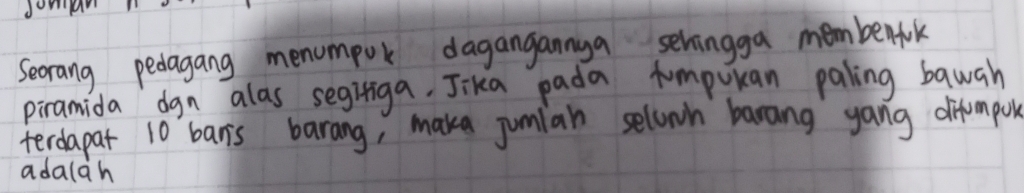 Seorang pedagang menumpuk dagangannya sehingga membentuk
piramida dgn alas segitiga. Jika pada tumpukan paling bawah
terdapat 10 baris barang, maka jumlah seluruh barang yang ditumpuk
adalah